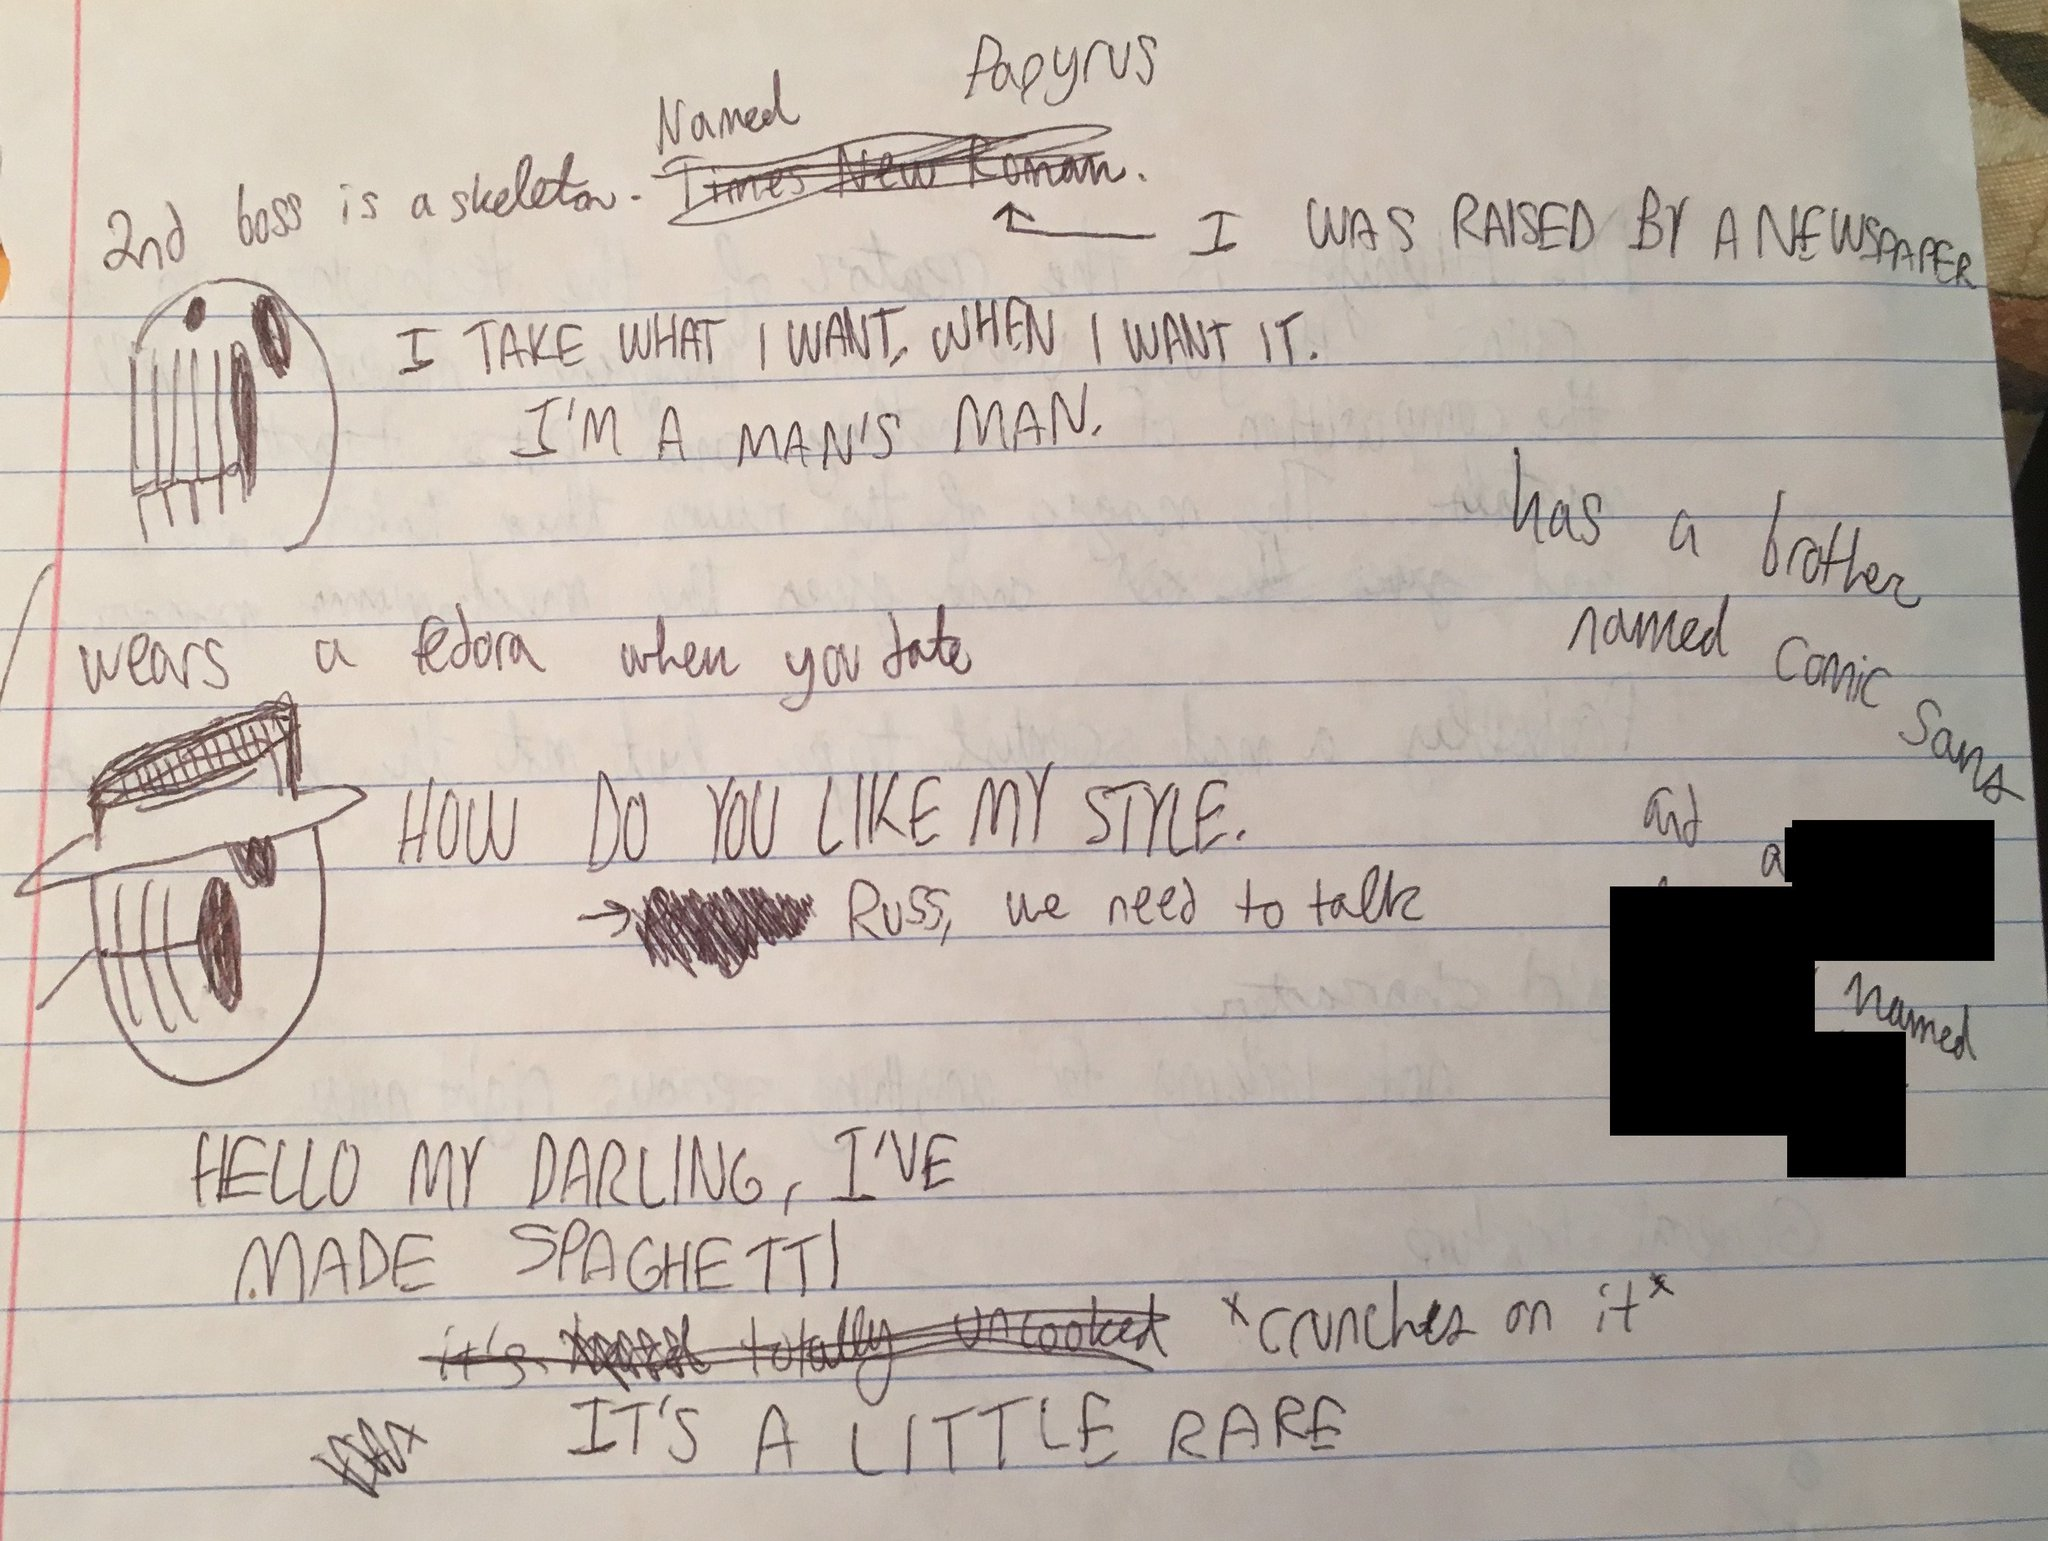 Papyrus
Named
2nd boss is a skeleton. Times New Roman.
I WAS RAISED BY A NEWSPAPER
I TAKE WHAT I WANT, WHEN I WANT IT.
I'M A MAN'S MAN.
has a brother
named Comic Sans
and a
named
wears a fedora when you date
HOW DO YOU LIKE MY STYLE.
Russ, we need to talk
HELLO MY DARLING, I'VE
MADE SPAGHETTI
it's totally uncooked *crunches on it*
IT'S A LITTLE RARE